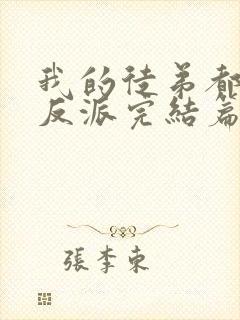 我的徒弟都
反派完結篇
張李東